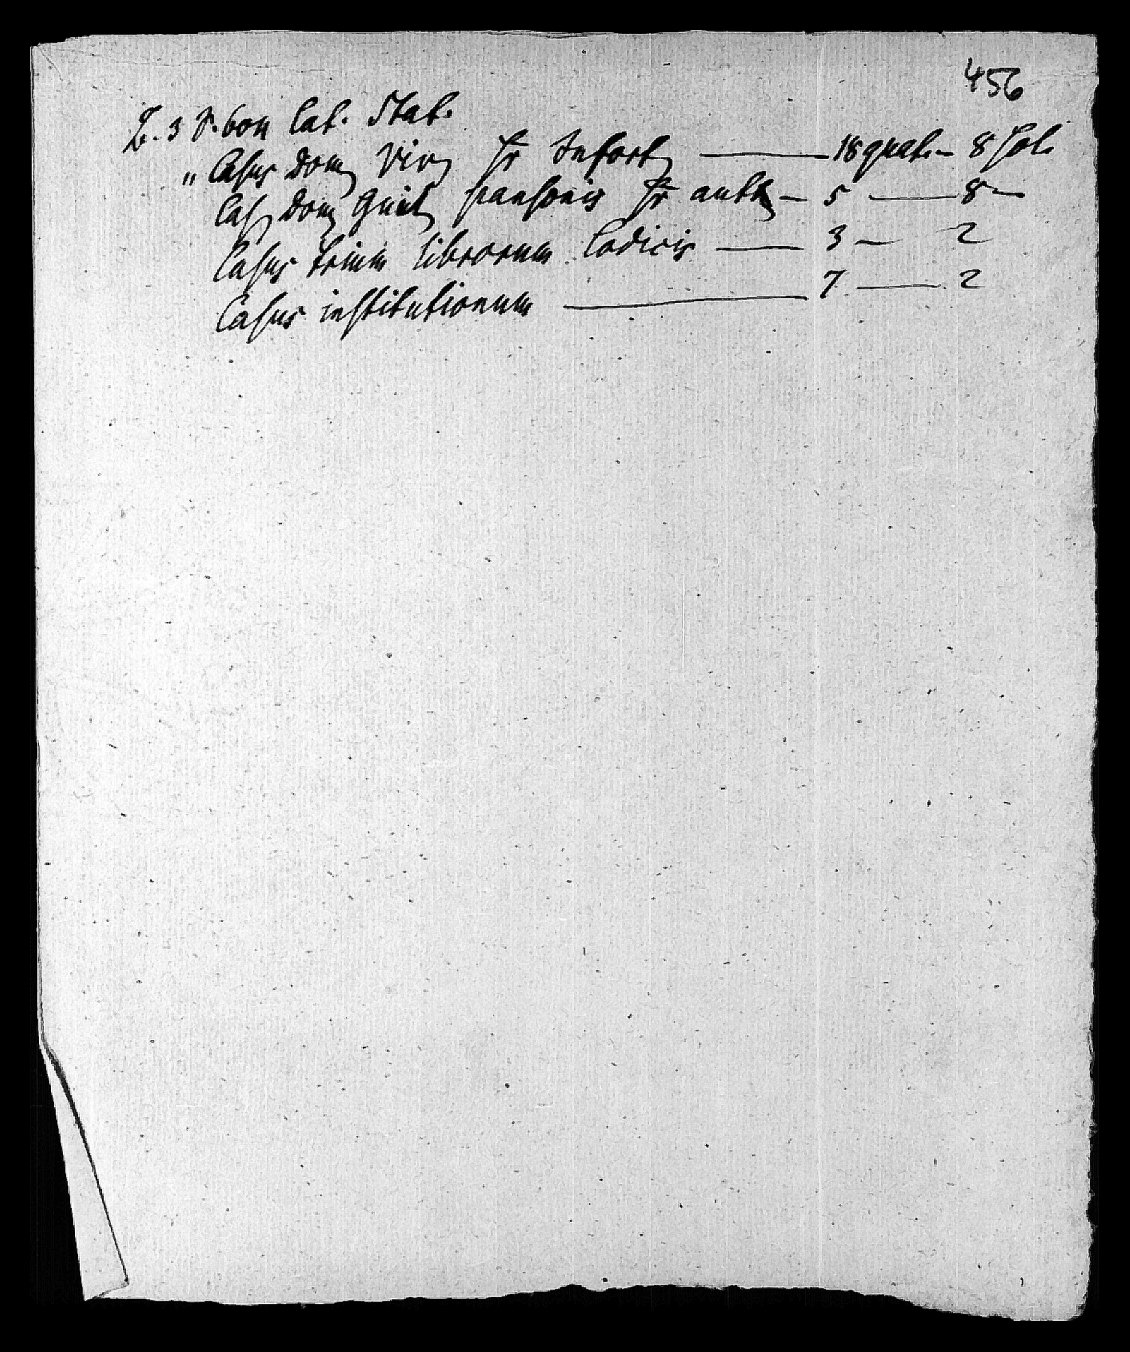 456
Z. 3 S. bon Cat. Stat.
„ Casus dom Viv Sr Infort — 18 quat. – 8 sol.
Cas dom Guil pansonis Sr auth – 5 — 8 –
Casus trium librorum Codicis — 3 – 2
Casus institutionum — 7 — 2